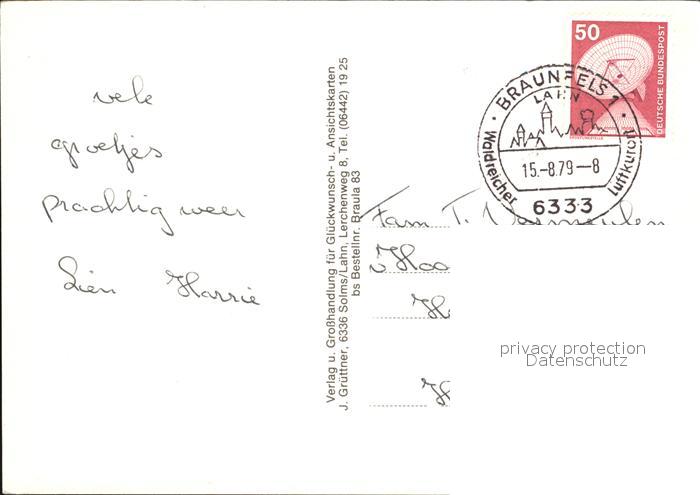 vele
groetjes
prachtig weer
Lien Harrie
Verlag u. Großhandlung für Glückwunsch- u. Ansichtskarten
J. Grüttner, 6336 Solms/Lahn, Lerchenweg 8, Tel. (06442) 19 25
bs Bestellnr. Braula 83
50
DEUTSCHE BUNDESPOST
BRAUNFELS 1
LAHN
15.-8.79-8
Waldreicher Luftkurort
6333
Fam T. Vermeulen
privacy protection
Datenschutz